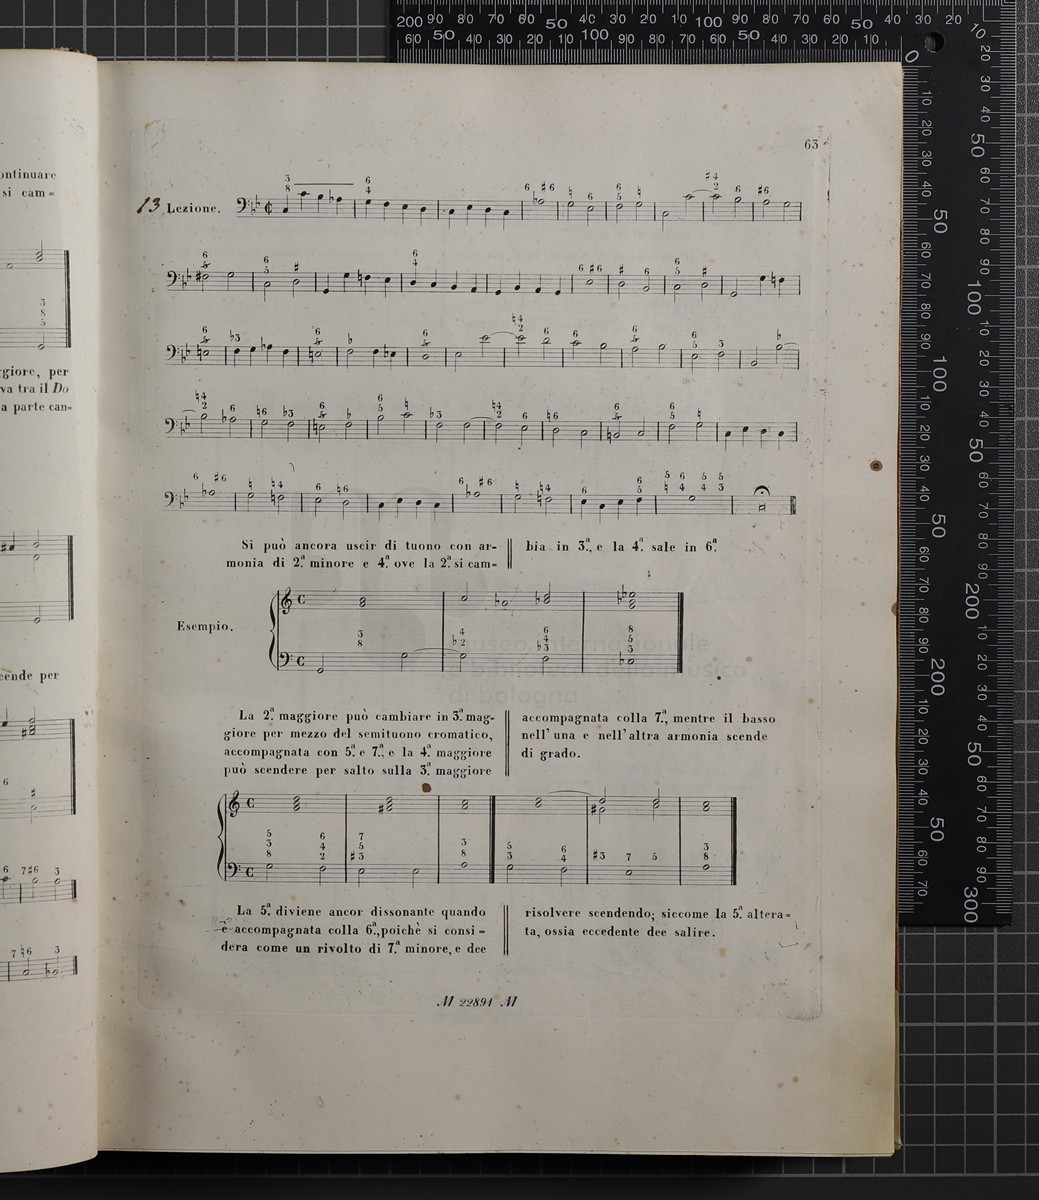 63
13 Lezione.
Si può ancora uscir di tuono con ar-
monia di 2.ª minore e 4.ª ove la 2.ª si cam-
bia in 3.ª, e la 4.ª sale in 6.ª
Esempio.
museo internazionale
e biblioteca della musica
di bologna
La 2.ª maggiore può cambiare in 3.ª mag-
giore per mezzo del semituono cromatico,
accompagnata con 5.ª e 7.ª, e la 4.ª maggiore
può scendere per salto sulla 3.ª maggiore
accompagnata colla 7.ª, mentre il basso
nell' una e nell' altra armonia scende
di grado.
La 5.ª diviene ancor dissonante quando
è accompagnata colla 6.ª, poichè si consi-
dera come un rivolto di 7.ª minore, e dee
risolvere scendendo; siccome la 5.ª altera-
ta, ossia eccedente dee salire.
M 22891 M
ontinuare
si cam-
ggiore, per
va tra il Do
a parte can-
cende per